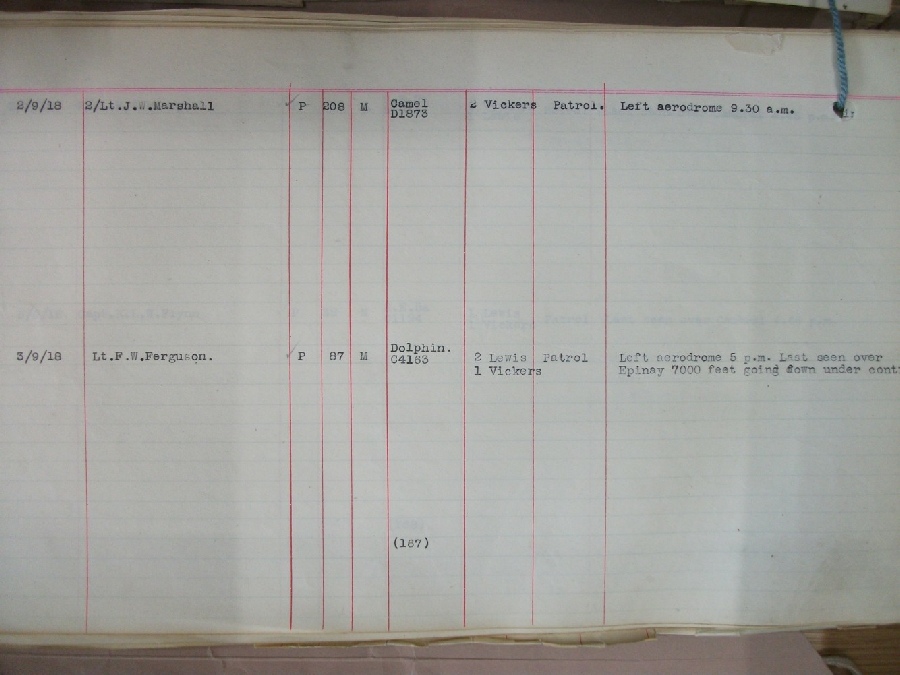 2/9/18 2/Lt.J.W.Marshall P 208 M Camel 2 Vickers Patrol. Left aerodrome 9.30 a.m.
D1873
3/9/18 Lt.F.W.Ferguson. P 87 M Dolphin. 2 Lewis Patrol Left aerodrome 5 p.m. Last seen over
C4163 1 Vickers Epinay 7000 feet going down under cont
(187)